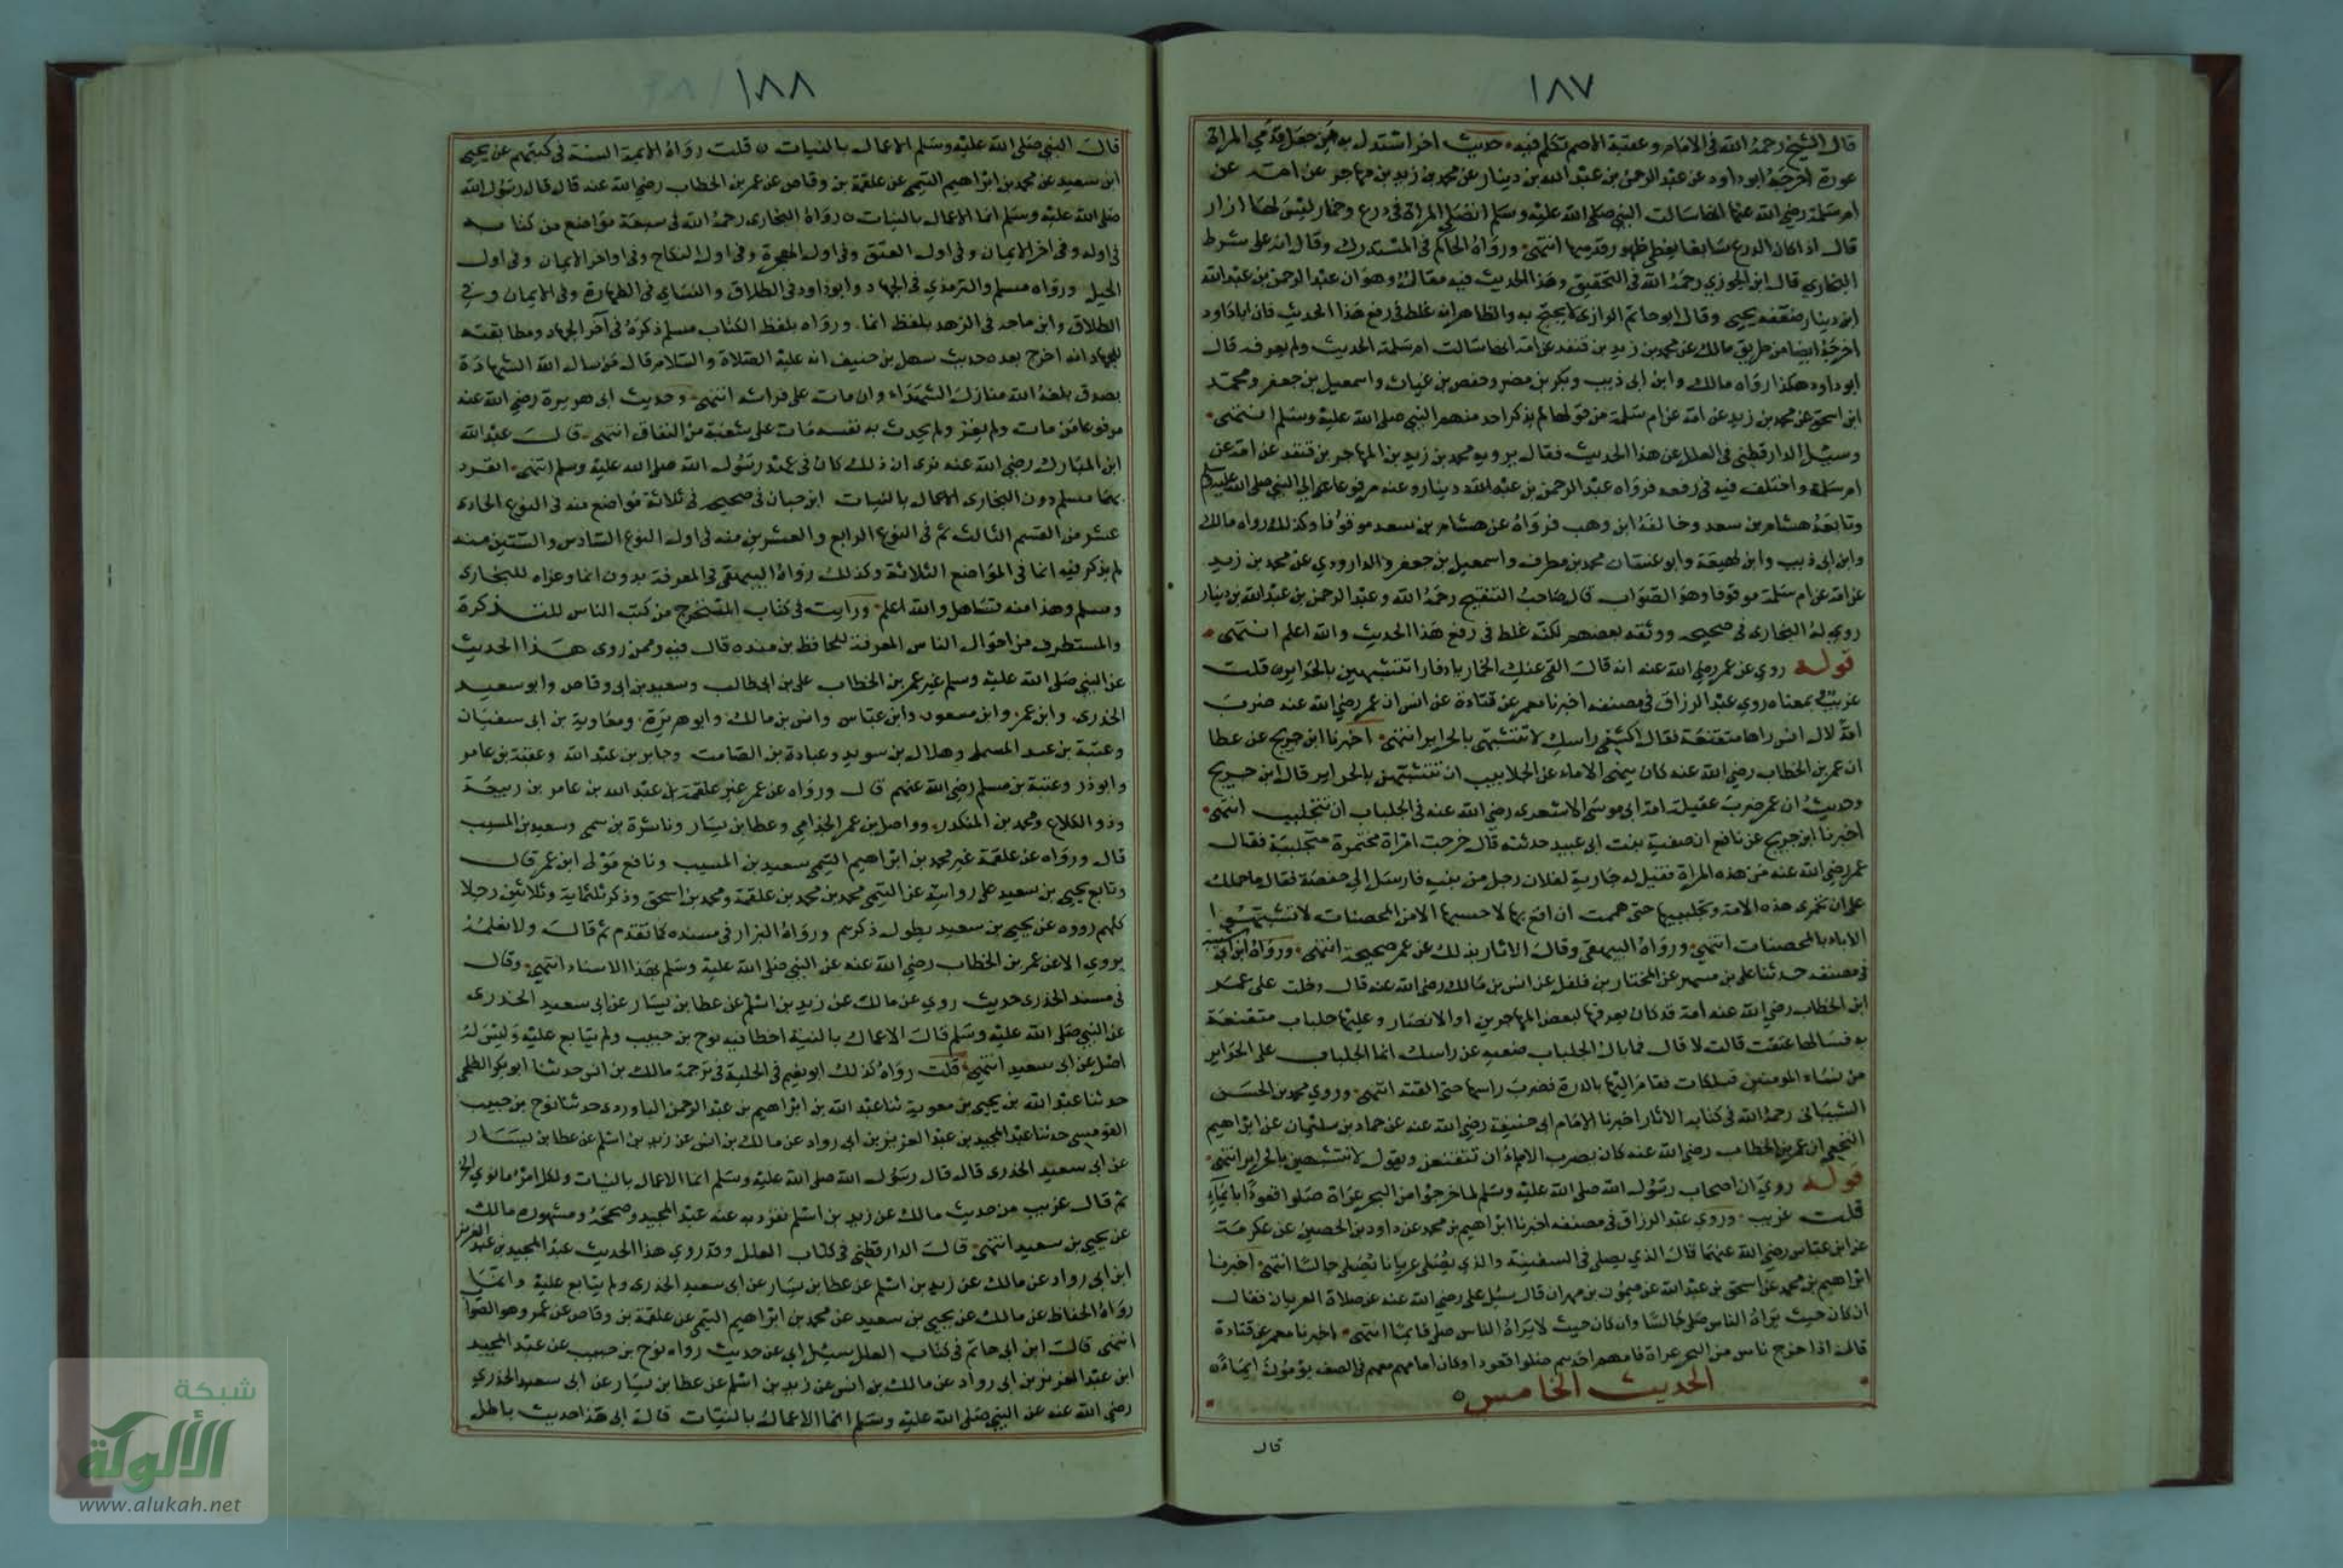 ١٨٧
قال الشيخ رحمه الله في الامام وعقبة الاصم تكلم فيه حديث اخر استدل به من جعل قدمي المراة
عورة اخرجه ابو داود عن عبد الرحمن بن عبد الله بن دينار عن محمد بن زيد بن مهاجر عن امه عن
ام سلمة رضي الله عنها انها سالت النبي صلى الله عليه وسلم اتصلي المراة في درع وخمار ليس لها ازار
قال اذا كان الدرع سابغا يغطي ظهور قدميها انتهى ورواه الحاكم في المستدرك وقال انه على شرط
البخاري قال ابن الجوزي رحمه الله في التحقيق وهذا الحديث فيه مقال وهو ان عبد الرحمن بن عبد الله
ابن دينار ضعفه يحيى وقال ابو حاتم الرازي لا يحتج به والظاهر انه غلط في رفع هذا الحديث فان ابا داود
اخرجه ايضا من طريق مالك عن محمد بن زيد بن قنفد عن امه انها سالت ام سلمة الحديث ولم يعرفه قال
ابو داود هكذا رواه مالك وابن ابي ذيب وبكر بن مضر وحفص بن غياث واسمعيل بن جعفر ومحمد
ابن اسحق عن محمد بن زيد عن امه عن ام سلمة من قولها لم يذكر احد منهم النبي صلى الله عليه وسلم انتهى
وسئل الدارقطني في العلل عن هذا الحديث فقال يرويه محمد بن زيد بن المهاجر بن قنفد عن امه عن
ام سلمة واختلف فيه في رفعه فرواه عبد الرحمن بن عبد الله دينار وعنه مرفوعا الى النبي صلى الله عليه وسلم
وتابعه هشام بن سعد وخالفه ابن وهب فرواه عن هشام بن سعد موقوفا وكذلك رواه مالك
وابن ابي ذيب وابن لهيعة وابو غسان محمد بن مطرف واسمعيل بن جعفر والداروردي عن محمد بن زيد
عن امه عن ام سلمة موقوفا وهو الصواب قال صاحب التنقيح رحمه الله وعبد الرحمن بن عبد الله بن دينار
روى له البخاري في صحيحه ووثقه بعضهم لكنه غلط في رفع هذا الحديث والله اعلم انتهى
قوله روي عن عمر رضي الله عنه انه قال القي عنك الخمار يا دفار اتتشبهين بالحراير قلت
غريب بمعناه روى عبد الرزاق في مصنفه اخبرنا معمر عن قتادة عن انس ان عمر رضي الله عنه ضرب
امة لال انس راها متقنعة فقال اكشفي راسك لا تتشبهي بالحراير انتهى اخبرنا ابن جريج عن عطا
ان عمر بن الخطاب رضي الله عنه كان ينهى الاماء عن الجلابيب ان تتشبهن بالحراير قال ابن جريج
وحديث ان عمر ضرب عقيلة امة ابي موسى الاشعري رضي الله عنه في الجلباب ان تتجلبب انتهى
اخبرنا ابن جريج عن نافع ان صفية بنت ابي عبيد حدثته قال خرجت امراة مختمرة متجلببة فقال
عمر رضي الله عنه من هذه المراة فقيل له جارية لفلان رجل من بنيه فارسل الى حفصة فقال ما حملك
على ان تخمري هذه الامة وتجلببيها حتى هممت ان اقع بها لا احسبها الا من المحصنات لا تشبهوا
الاماء بالمحصنات انتهى ورواه البيهقي وقال الاثار بذلك عن عمر صحيحة انتهى ورواه ابن ابي شيبة
في مصنفه حدثنا علي بن مسهر عن المختار بن فلفل عن انس بن مالك رضي الله عنه قال دخلت على عمر
ابن الخطاب رضي الله عنه امة قد كان يعرفها لبعض المهاجرين او الانصار وعليها جلباب متقنعة
به فسالها عتقت قالت لا قال فما بال الجلباب ضعيه عن راسك انما الجلباب على الحراير
من نساء المومنين فتلكات فقام اليها بالدرة فضرب راسها حتى القته انتهى وروى محمد بن الحسن
الشيباني رحمه الله في كتابه الاثار اخبرنا الامام ابي حنيفة رضي الله عنه عن حماد بن سليمان عن ابراهيم
النخعي ان عمر بن الخطاب رضي الله عنه كان يضرب الاماء ان تتقنعن ويقول لا تتشبهين بالحراير انتهى
قوله روي ان اصحاب رسول الله صلى الله عليه وسلم لما خرجوا من البحر عراة صلوا قعودا بايماء
قلت غريب وروى عبد الرزاق في مصنفه اخبرنا ابراهيم بن محمد عن داود بن الحصين عن عكرمة
عن ابن عباس رضي الله عنهما قال الذي يصلي في السفينة والذي يصلي عريانا يصلي جالسا انتهى اخبرنا
ابراهيم بن محمد عن اسحق بن عبد الله عن ميمون بن مهران قال سئل علي رضي الله عنه عن صلاة العريان فقال
ان كان حيث يراه الناس صلى جالسا وان كان حيث لا يراه الناس صلى قايما انتهى اخبرنا معمر عن قتادة
قال اذا خرج ناس من البحر عراة فامهم احدهم صلوا قعودا وكان امامهم معهم في الصف يومون ايماء
الحديث الخامس
قال
١٨٨
قال النبي صلى الله عليه وسلم الاعمال بالنيات قلت رواه الايمة الستة في كتبهم عن يحيى
ابن سعيد عن محمد بن ابراهيم التيمي عن علقمة بن وقاص عن عمر بن الخطاب رضي الله عنه قال قال رسول الله
صلى الله عليه وسلم انما الاعمال بالنيات رواه البخاري رحمه الله في سبعة مواضع من كتابه
في اوله وفي اخر الايمان وفي اول العتق وفي اول الهجرة وفي اول النكاح وفي اواخر الايمان وفي اول
الحيل ورواه مسلم والترمذي في الجهاد وابو داود في الطلاق والنساي في الطهارة وفي الايمان وفي
الطلاق وابن ماجه في الزهد بلفظ انما ورواه بلفظ الكتاب مسلم ذكره في آخر الجهاد ومطابقته
للجهاد انه اخرج بعده حديث سهل بن حنيف انه عليه الصلاة والسلام قال من سال الله الشهادة
بصدق بلغه الله منازل الشهداء وان مات على فراشه انتهى وحديث ابي هريرة رضي الله عنه
مرفوعا من مات ولم يغز ولم يحدث به نفسه مات على شعبة من النفاق انتهى قال عبد الله
ابن المبارك رضي الله عنه نرى ان ذلك كان في عهد رسول الله صلى الله عليه وسلم انتهى انفرد
بهما مسلم دون البخاري الاعمال بالنيات ابن حبان في صحيحه في ثلاثة مواضع منه في النوع الحادي
عشر من القسم الثالث ثم في النوع الرابع والعشرين منه في اول النوع السادس والستين منه
لم يذكر فيه انما في المواضع الثلاثة وكذلك رواه البيهقي في المعرفة بدون انما وعزاه للبخاري
ومسلم وهذا منه تساهل والله اعلم ورايت في كتاب المستخرج من كتب الناس للتذكرة
والمستطرف من احوال الناس المعرفة للحافظ بن منده قال فيه وممن روى هذا الحديث
عن النبي صلى الله عليه وسلم غير عمر بن الخطاب علي بن ابي طالب وسعيد بن ابي وقاص وابو سعيد
الخدري وابن عمر وابن مسعود وابن عباس وانس بن مالك وابو هريرة ومعاوية بن ابي سفيان
وعتبة بن عبد المسملي وهلال بن سويد وعبادة بن الصامت وجابر بن عبد الله وعقبة بن عامر
وابو ذر وعتبة بن مسلم رضي الله عنهم قال ورواه عن عمر غير علقمة بل عبد الله بن عامر بن ربيعة
وذو الكلاع ومحمد بن المنكدر وواصل بن عمر الجذامي وعطا بن يسار وناشرة بن سمي وسعيد بن المسيب
قال ورواه عن علقمة غير محمد بن ابراهيم التيمي سعيد بن المسيب ونافع مولى ابن عمر قال
وتابع يحيى بن سعيد على روايته عن التيمي محمد بن محمد بن علقمة ومحمد بن اسحق وذكر ثلثماية وثلاثين رجلا
كلهم رووه عن يحيى بن سعيد يطول ذكرهم ورواه البزار في مسنده كما تقدم ثم قال ولا نعلمه
يروي الا عن عمر بن الخطاب رضي الله عنه عن النبي صلى الله عليه وسلم بهذا الاسناد انتهى وقال
في مسند الخدري حديث روي عن مالك عن زيد بن اسلم عن عطا بن يسار عن ابي سعيد الخدري
عن النبي صلى الله عليه وسلم قال الاعمال بالنية اخطا فيه نوح بن حبيب ولم يتابع عليه وليس له
اصل عن ابي سعيد انتهى قلت رواه كذلك ابو نعيم في الحلية في ترجمة مالك بن انس حدثنا ابو بكر الطلحي
حدثنا عبد الله بن يحيى بن معوية ثنا عبد الله بن ابراهيم بن عبد الرحمن الباوردي حدثنا نوح بن حبيب
القومسي حدثنا عبد المجيد بن عبد العزيز بن ابي رواد عن مالك بن انس عن زيد بن اسلم عن عطا بن يسار
عن ابي سعيد الخدري قال قال رسول الله صلى الله عليه وسلم انما الاعمال بالنيات ولكل امرئ ما نوى الخ
ثم قال غريب من حديث مالك عن زيد بن اسلم تفرد به عنه عبد المجيد وصححه ومشهوره مالك
عن يحيى بن سعيد انتهى قال الدارقطني في كتاب العلل وقد روى هذا الحديث عبد المجيد بن عبد العزيز
ابن ابي رواد عن مالك عن زيد بن اسلم عن عطا بن يسار عن ابي سعيد الخدري ولم يتابع عليه وانما
رواه الحفاظ عن مالك عن يحيى بن سعيد عن محمد بن ابراهيم التيمي عن علقمة بن وقاص عن عمر وهو الصواب
انتهى قال ابن ابي حاتم في كتاب العلل سئل ابي عن حديث رواه نوح بن حبيب عن عبد المجيد
ابن عبد العزيز بن ابي رواد عن مالك بن انس عن زيد بن اسلم عن عطا بن يسار عن ابي سعيد الخدري
رضي الله عنه عن النبي صلى الله عليه وسلم انما الاعمال بالنيات قال ابي هذا حديث باطل
شبكة
الألوكة
www.alukah.net